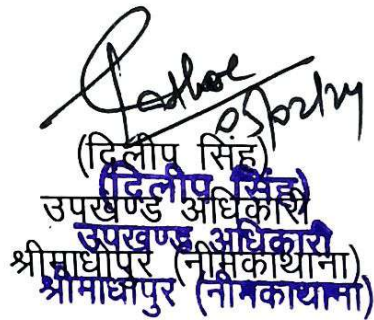 05/02/24
(दिलीप सिंह)
(दिलीप सिंह)
उपखण्ड अधिकारी
उपखण्ड अधिकारी
श्रीमाधोपुर (नीमकाथाना)
श्रीमाधोपुर (नीमकाथाना)